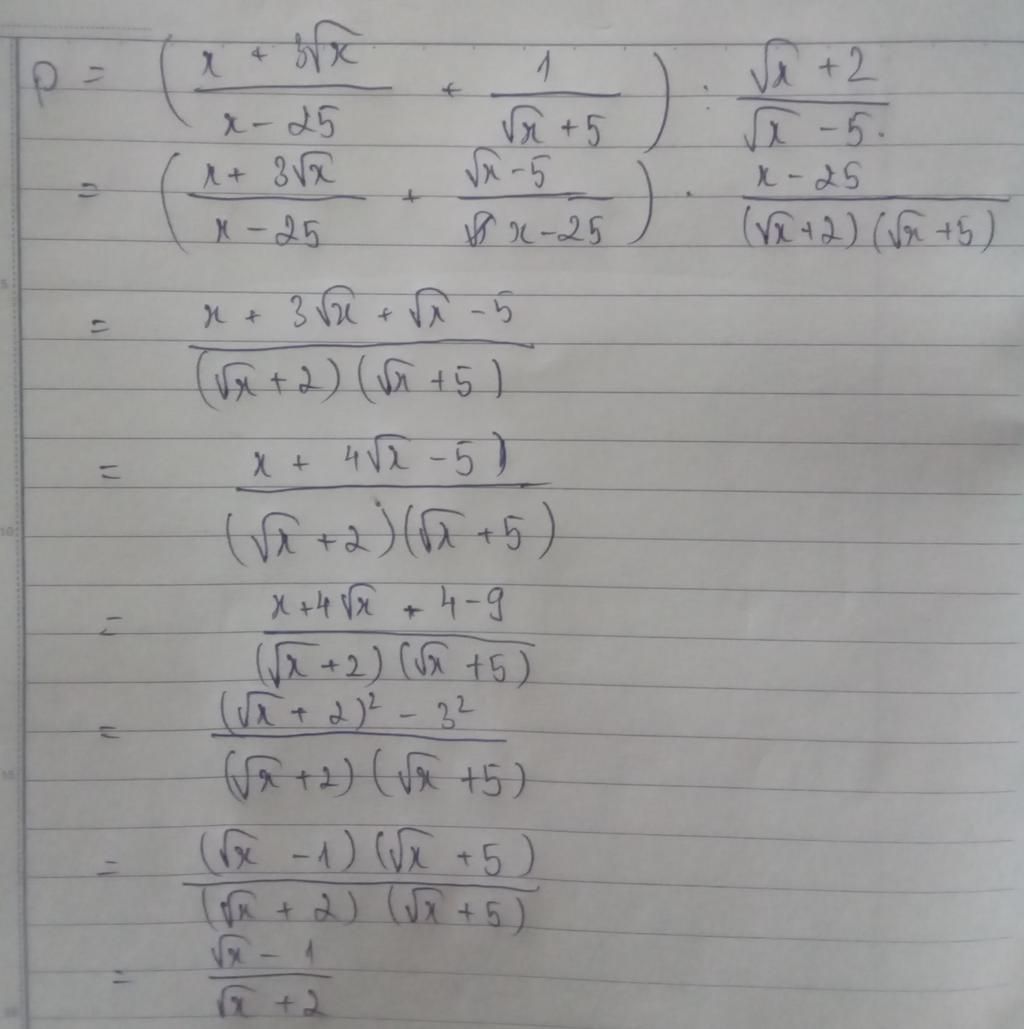 P = ( (x + 3√x)/(x - 25) + 1/(√x + 5) ) : (√x + 2)/(√x - 5).
= ( (x + 3√x)/(x - 25) + (√x - 5)/(x - 25) ) . (x - 25)/((√x + 2)(√x + 5))
= (x + 3√x + √x - 5)/((√x + 2)(√x + 5))
= (x + 4√x - 5)/((√x + 2)(√x + 5))
= (x + 4√x + 4 - 9)/((√x + 2)(√x + 5))
= ((√x + 2)² - 3²)/((√x + 2)(√x + 5))
= ((√x - 1)(√x + 5))/((√x + 2)(√x + 5))
= (√x - 1)/(√x + 2)